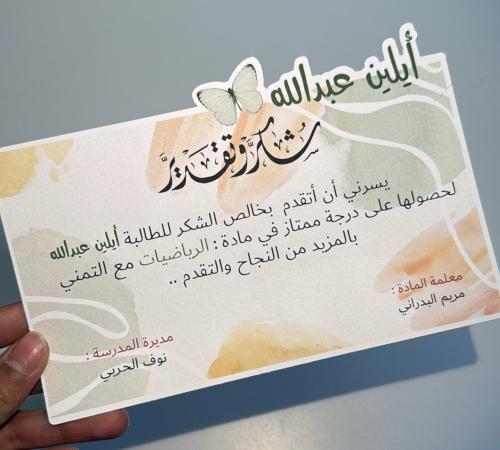 أيلين عبدالله
شكر وتقدير
يسرني أن أتقدم بخالص الشكر للطالبة أيلين عبدالله
لحصولها على درجة ممتاز في مادة : الرياضيات مع التمني
بالمزيد من النجاح والتقدم ..
معلمة المادة :
مريم البدراني
مديرة المدرسة :
نوف الحربي